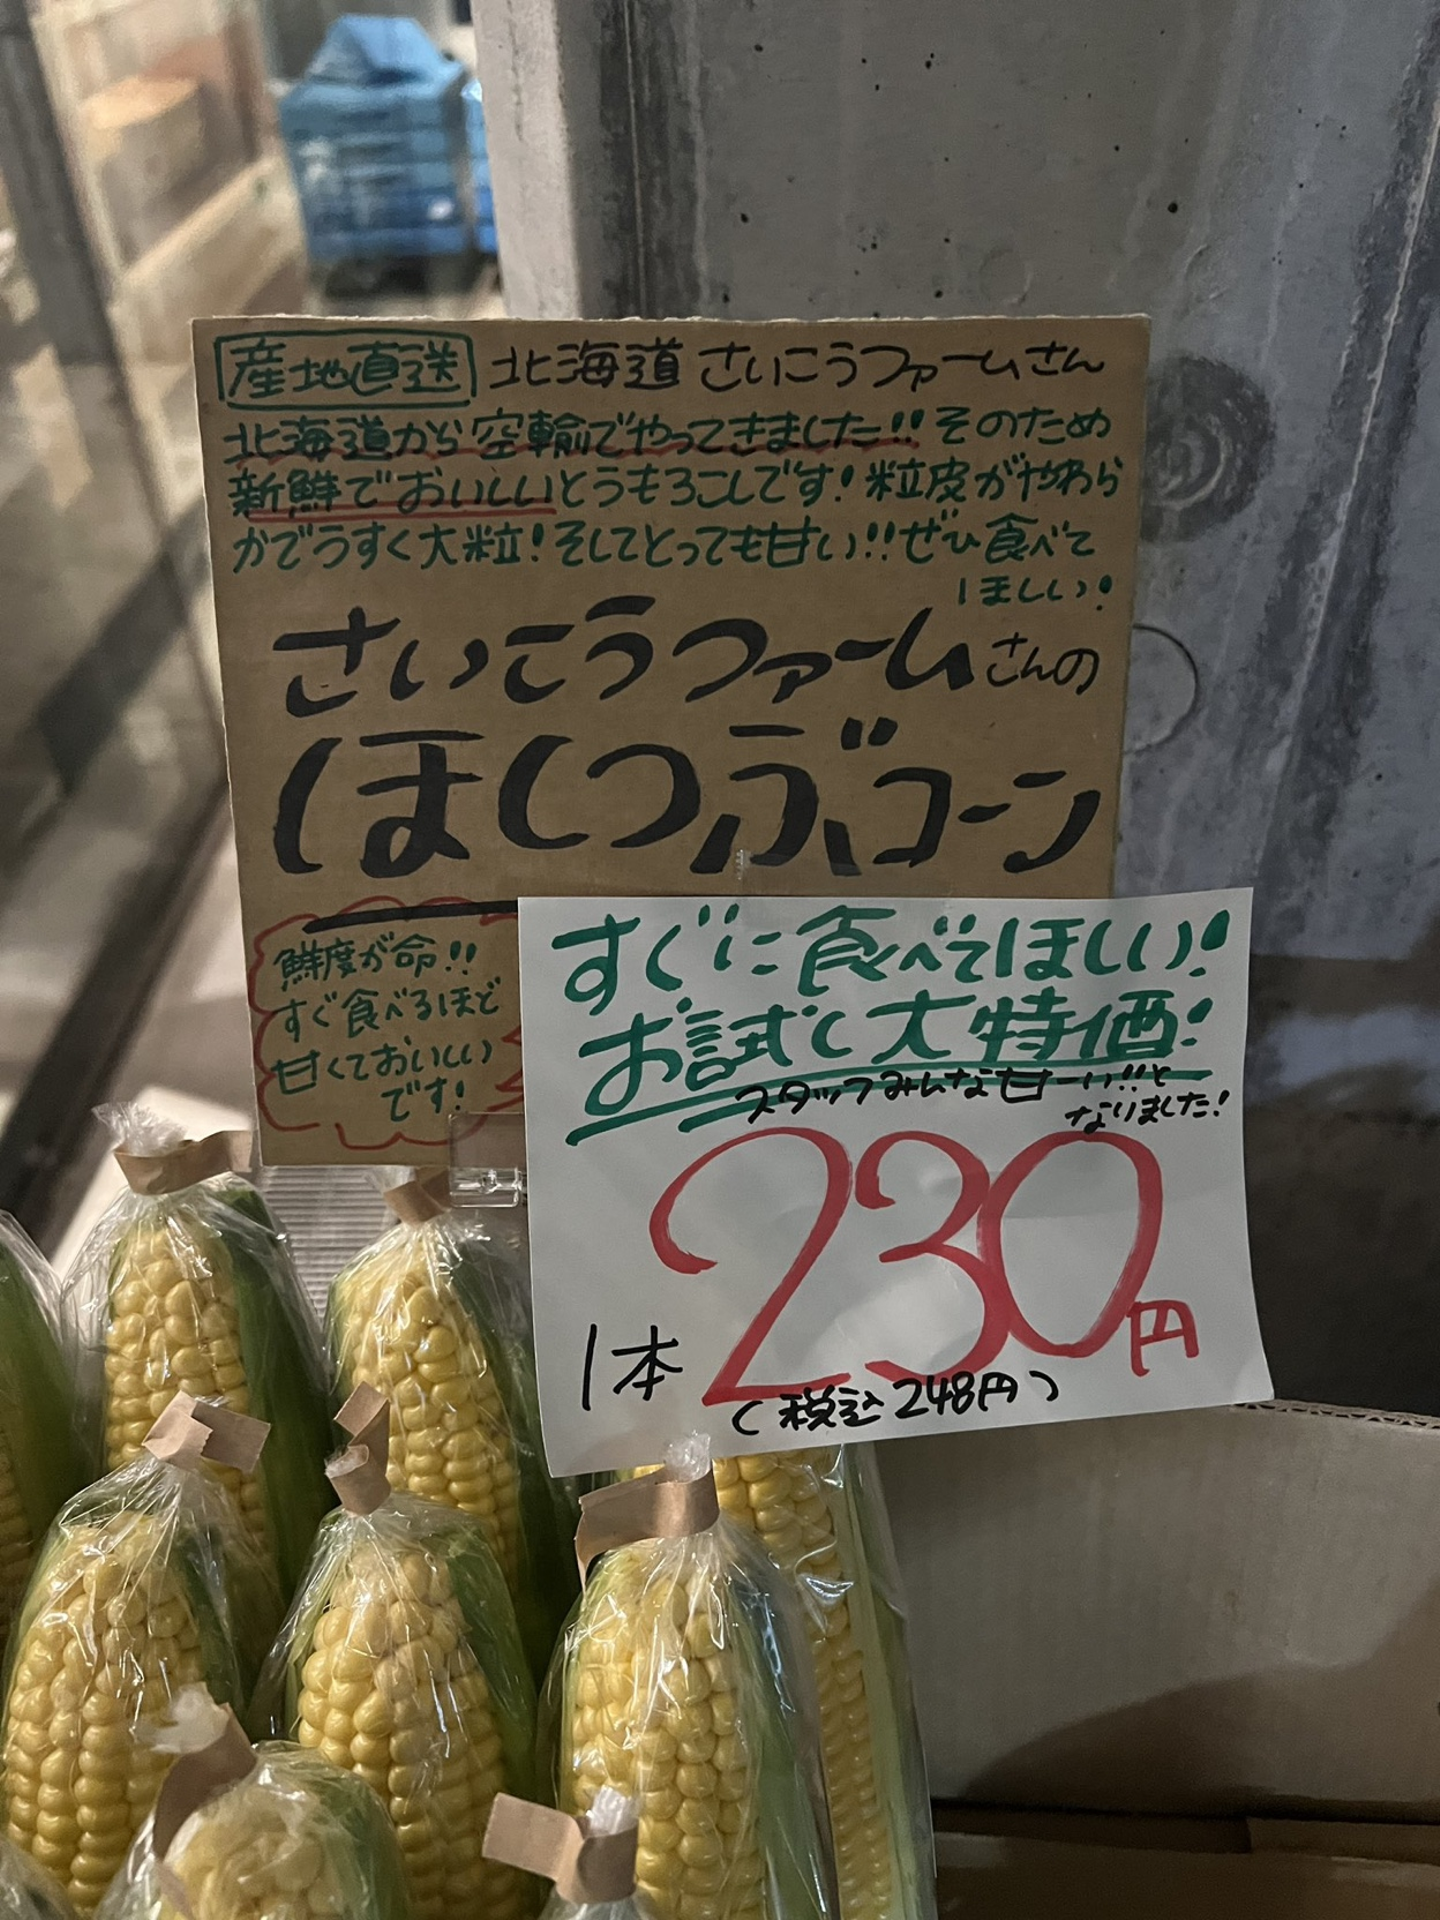 産地直送 北海道 さいこうファームさん
北海道から空輸でやってきました!! そのため
新鮮でおいしいとうもろこしです! 粒皮がやわら
かでうすく大粒! そしてとっても甘い!! ぜひ食べて
ほしい!
さいこうファームさんの
ほしつぶコーン
鮮度が命!!
すぐ食べるほど
甘くておいしい
です!
すぐに食べてほしい!
お試し大特価!
スタッフみんな甘ーい!!と
なりました!
1本 230円
(税込248円)